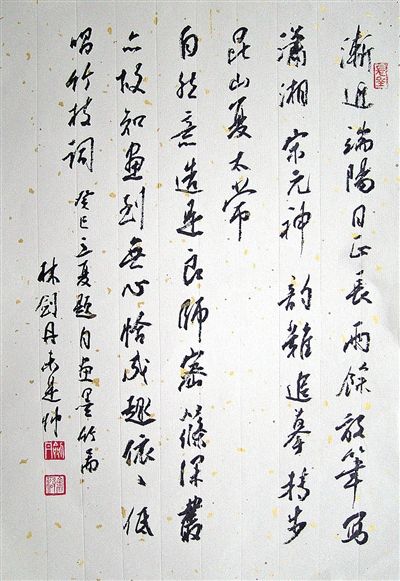 漸近端陽日正長雨餘放筆寫
瀟湘宋元神韵難追摹特步
昆山夏太常
自然意造是良師密篠深叢
亦知畫到無心恰成趣依〻低
唱竹枝詞 癸巳立夏題自畫墨竹
林劍丹未是艸